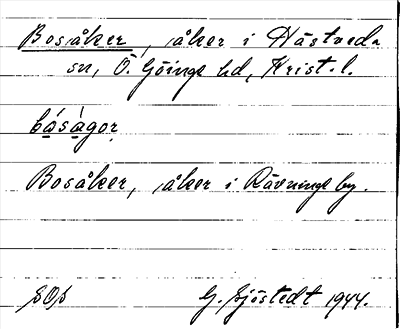 Bosåker, åker i Hästveda
sn, Ö. Göinge hd, Krist. l.
básàgor
Bosåker, åker i Rävninge by.
SOS G. Sjöstedt 1944.